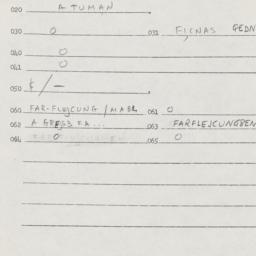 020 A TUMAN
030 0 031 FICNAS GEDN
040 0
041 0
050 $/-
060 FAR-FLEJCUNG/MABL 061 0
062 A GRESS FA... 063 FARFLEJCUNGBEN
064 0 065 0